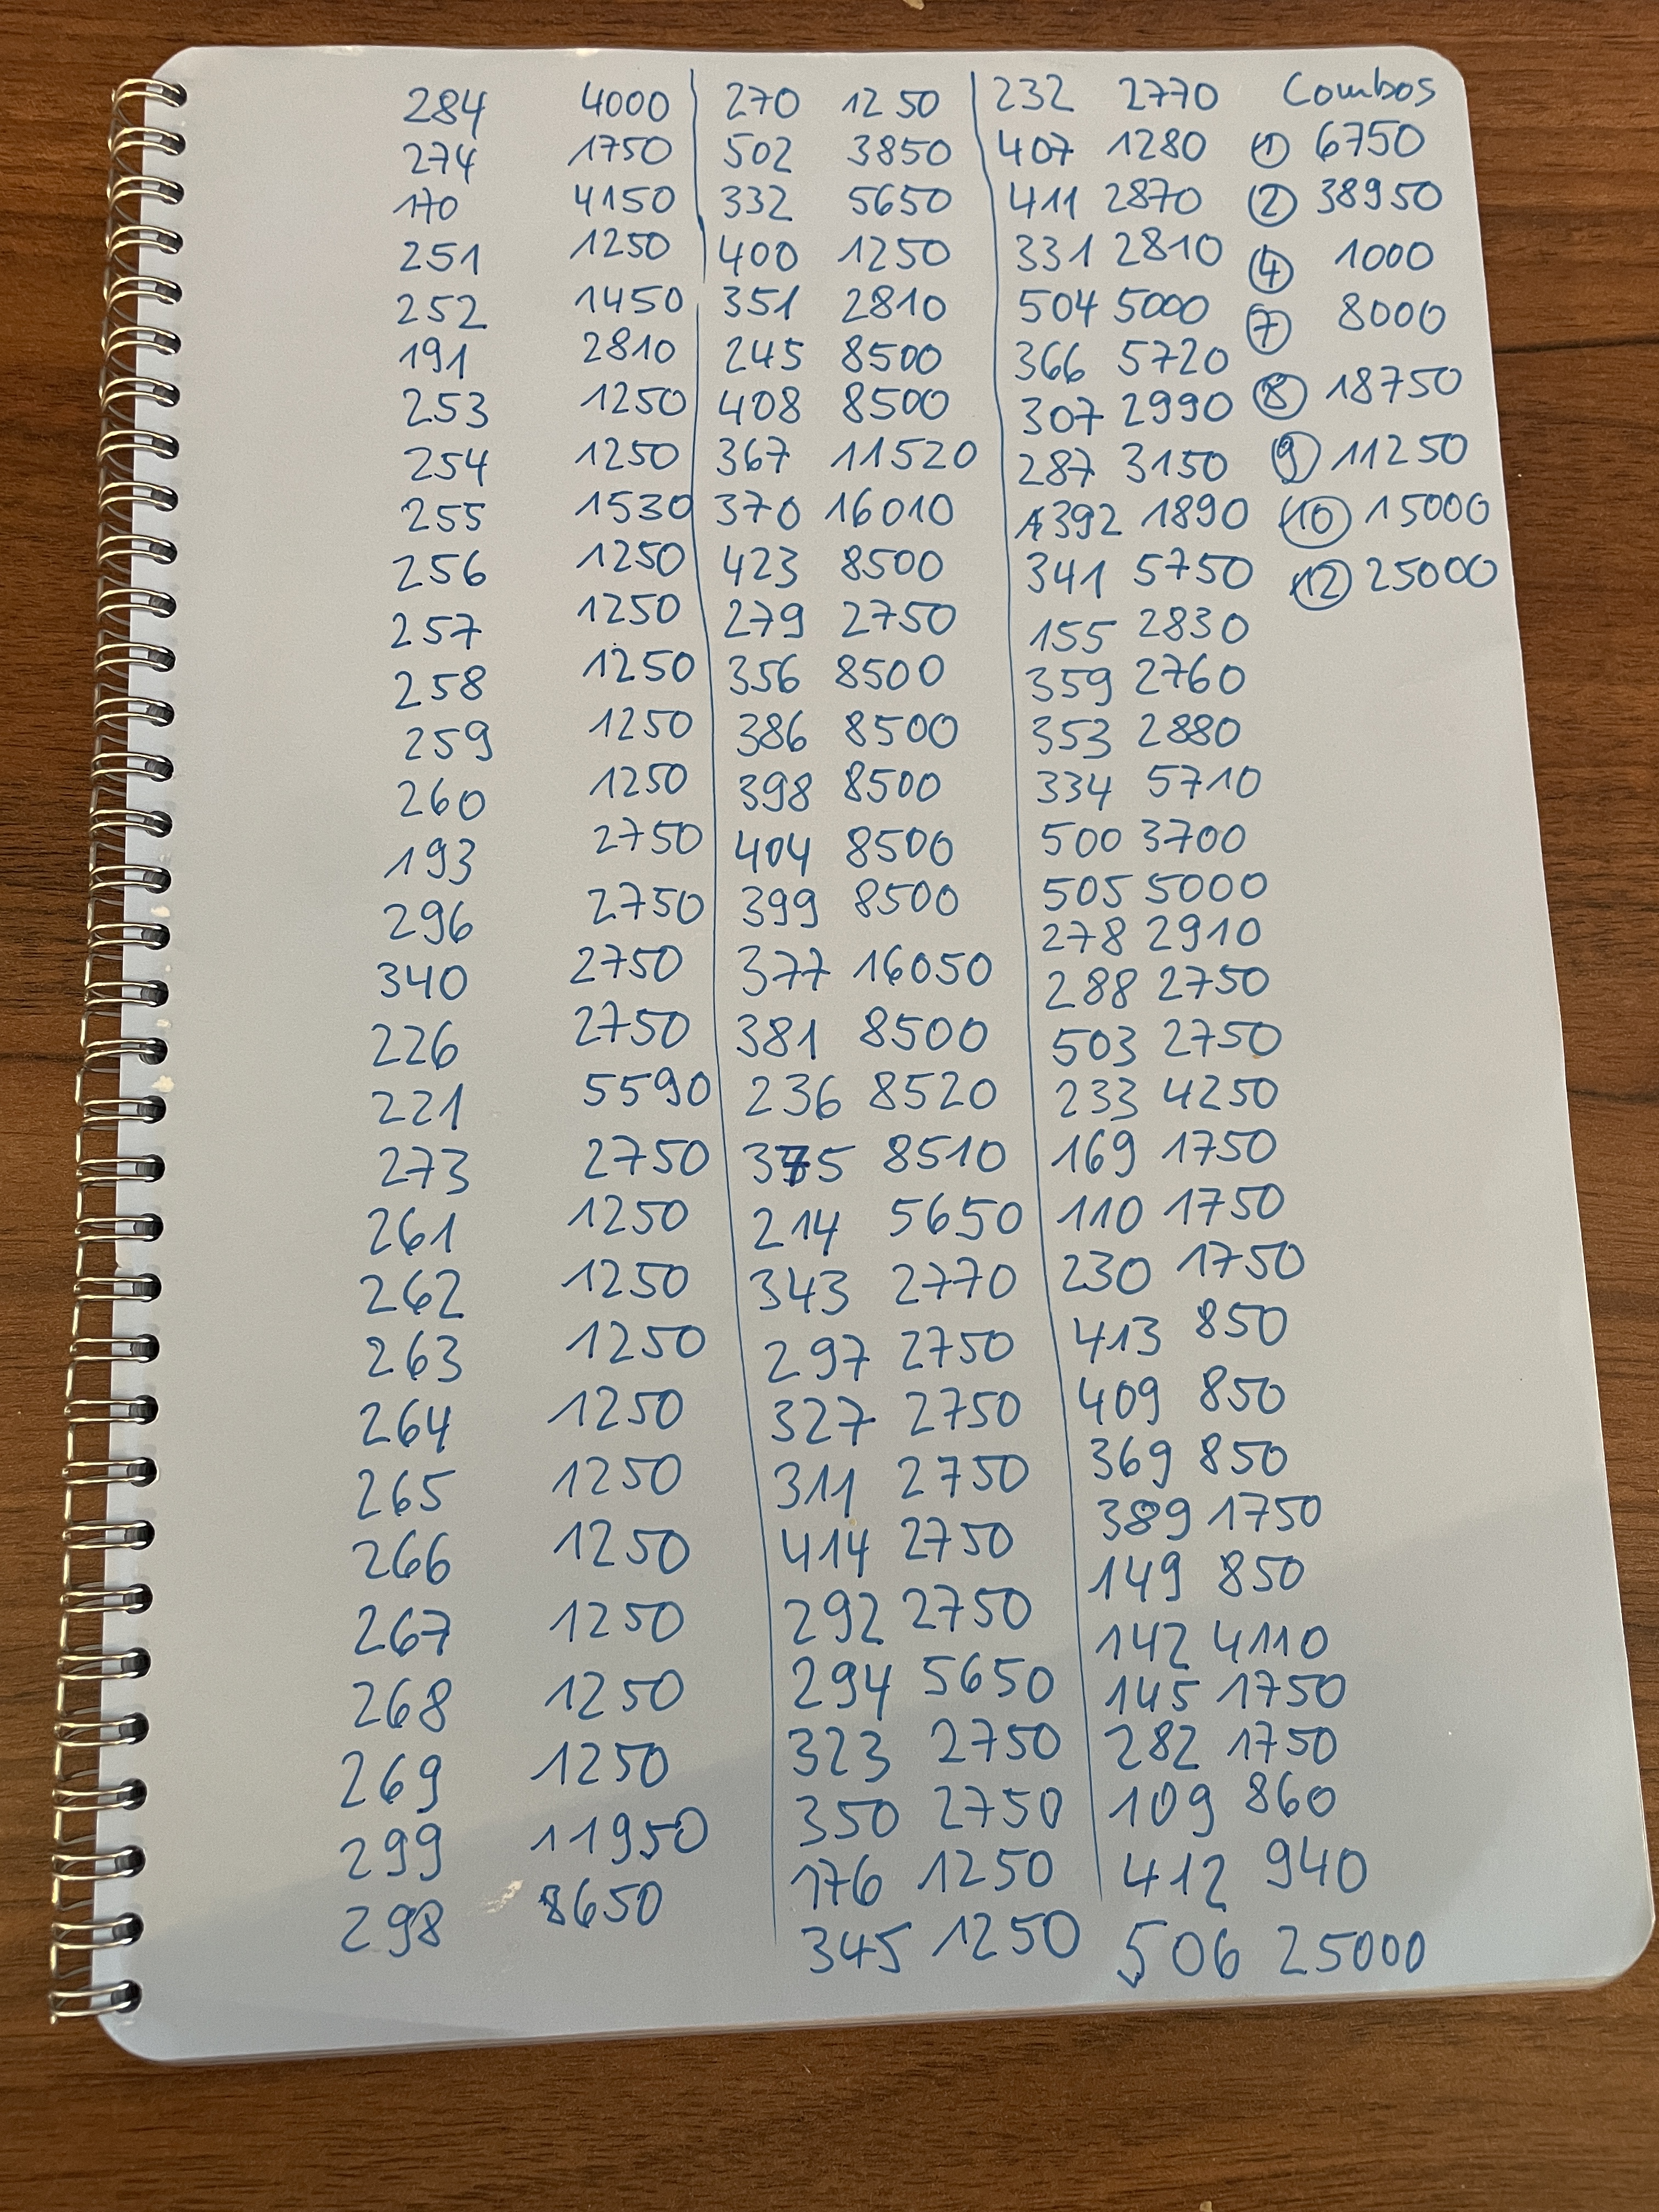 284 4000
274 1750
170 4150
251 1250
252 1450
191 2810
253 1250
254 1250
255 1530
256 1250
257 1250
258 1250
259 1250
260 1250
193 2750
296 2750
340 2750
226 2750
221 5590
273 2750
261 1250
262 1250
263 1250
264 1250
265 1250
266 1250
267 1250
268 1250
269 1250
299 11950
298 8650
270 1250
502 3850
332 5650
400 1250
351 2810
245 8500
408 8500
367 11520
370 16010
423 8500
279 2750
356 8500
386 8500
398 8500
404 8500
399 8500
377 16050
381 8500
236 8520
375 8510
214 5650
343 2770
297 2750
327 2750
311 2750
414 2750
292 2750
294 5650
323 2750
350 2750
176 1250
345 1250
232 2770
407 1280
411 2870
331 2810
504 5000
366 5720
307 2990
287 3150
392 1890
341 5750
155 2830
359 2760
353 2880
334 5710
500 3700
505 5000
278 2910
288 2750
503 2750
233 4250
169 1750
110 1750
230 1750
413 850
409 850
369 850
389 1750
149 850
142 4110
145 1750
282 1750
109 860
412 940
506 25000
Combos
① 6750
② 38950
④ 1000
⑦ 8000
⑧ 18750
⑨ 11250
⑩ 15000
⑫ 25000